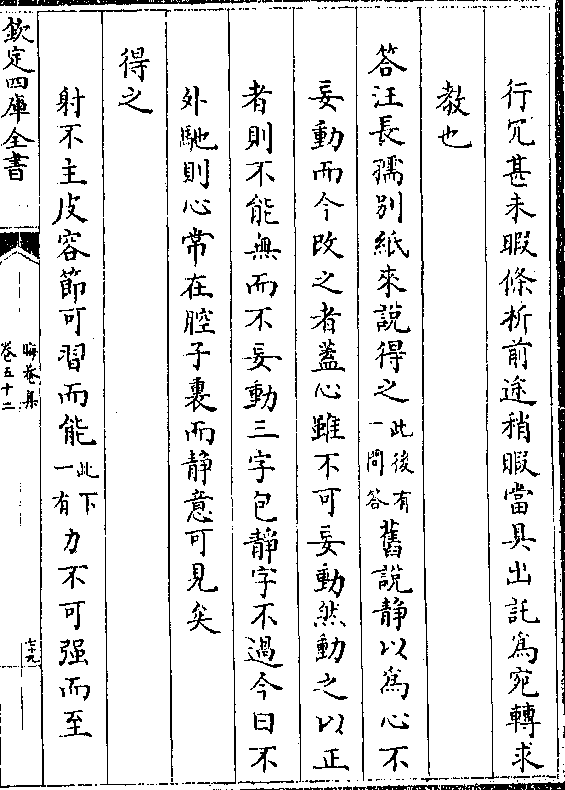 行冗甚未暇條析前途稍暇當具出託為宛轉求
教也
答汪長孺別紙來說得之此後有一問答舊說靜以為心不
妄動而今改之者蓋心雖不可妄動然動之以正
者則不能無而不妄動三字包靜字不過今曰不
外馳則心常在腔子裏而靜意可見矣
得之
射不主皮容節可習而能此下一有力不可强而至
欽定四庫全書
晦菴集
卷五十二